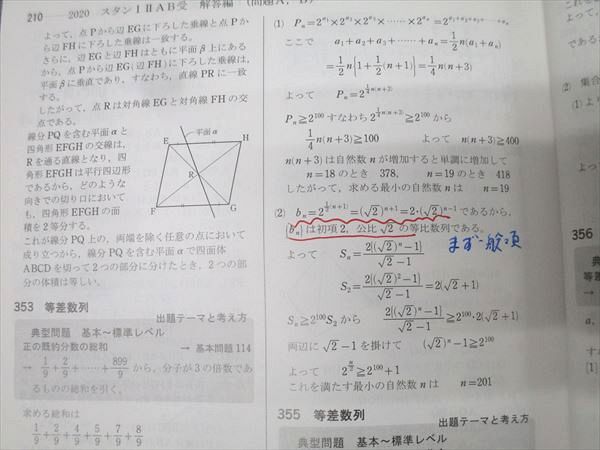 210 2020 スタンⅠⅡAB受 解答編 (問題A, B)
よって，点Pから辺EGに下ろした垂線と点Pか
ら辺FHに下ろした垂線は一致する。
さらに，辺EGと辺FHはともに平面β上にある
から，点Pから辺EG(辺FH)に下ろした垂線は，
平面βに垂直であり，すなわち，直線PRに一致
する。
したがって，点Rは対角線EGと対角線FHの交
点である。
線分PQを含む平面αと
四角形EFGHの交線は，
Rを通る直線となり，四
角形EFGHは平行四辺形
であるから，どのような
向きでの切り口において
も，四角形EFGHの面
積を2等分する。
平面α
E
H
R
F
G
これが線分PQ上の，両端を除く任意の点において
成り立つから，線分PQを含む平面αで四面体
ABCDを切って2つの部分に分けたとき，2つの部
分の体積は等しい。
353 等差数列
出題テーマと考え方
典型問題 基本～標準レベル
正の既約分数の総和 → 基本問題114
→ 1/9+2/9+……+899/9 から，分子が3の倍数であ
るものの総和を引く。
求める総和は
1/9+2/9+4/9+5/9+7/9+8/9
(1) Pn=2^a1×2^a2×2^a3×……×2^an=2^(a1+a2+a3+……+an)
ここで a1+a2+a3+……+an=1/2 n(a1+an)
=1/2 n{1+1/2(n+1)}=1/4 n(n+3)
よって Pn=2^(1/4 n(n+3))
Pn≧2^100 すなわち 2^(1/4 n(n+3))≧2^100 から
1/4 n(n+3)≧100 よって n(n+3)≧400
n(n+3)は自然数nが増加すると単調に増加して
n=18のとき 378, n=19のとき 418
したがって，求める最小の自然数は n=19
(2) bn=2^(1/2(n+1))=(√2)^(n+1)=2・(√2)^(n-1) であるから，
{bn}は初項2，公比√2の等比数列である。
まず一般項
よって Sn=2{(√2)^n-1}/(√2-1)
S2=2{(√2)^2-1}/(√2-1)=2(√2+1)
Sn≧2^100 S2 から 2{(√2)^n-1}/(√2-1)≧2^100・2(√2+1)
両辺に√2-1を掛けて (√2)^n-1≧2^100
よって 2^(n/2)≧2^100+1
これを満たす最小の自然数nは n=201
355 等差数列
出題テーマと考え方
典型問題 基本～標準レベル
(2) 集合
356